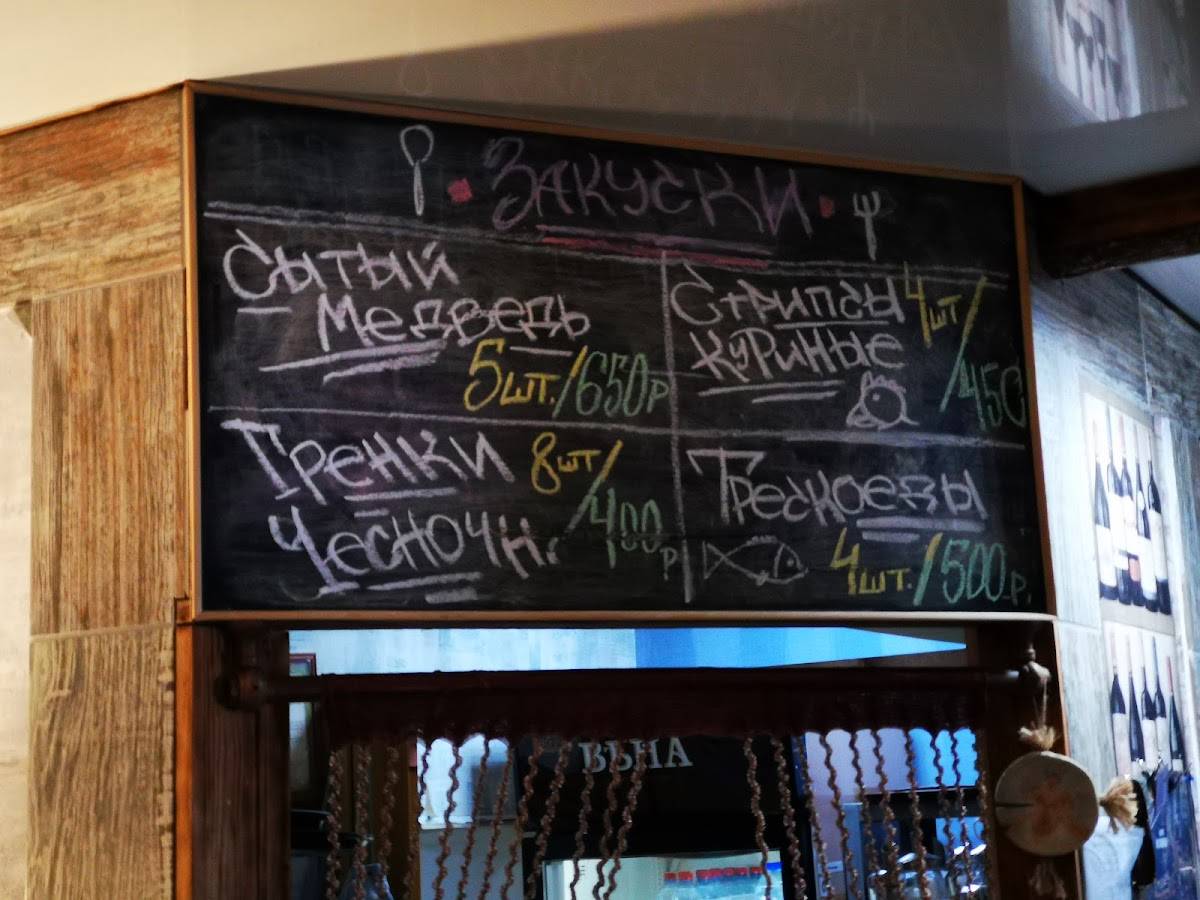 Закуски
Сытый
Медведь
5шт./650р
Стрипсы 4шт/
куриные
/450
Гренки 8шт/
Чесночн. 400
р
Трескоеды
4шт./500р.